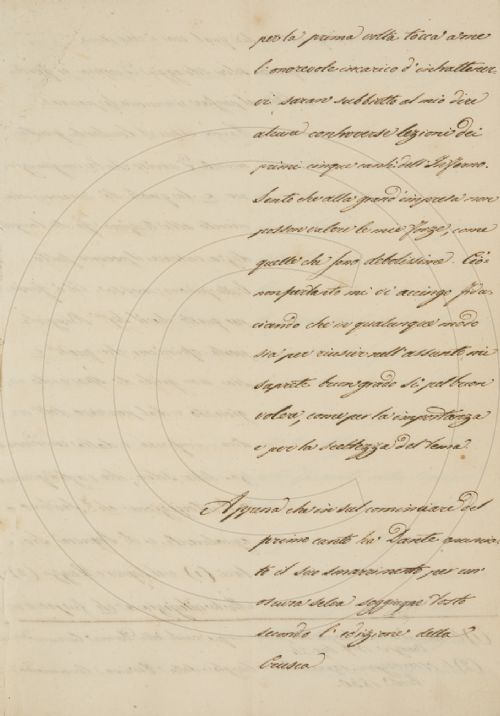 per la prima volta tocca a me
l'onorevole incarico d'intrattener
vi saran subbietto al mio dire
alcune controverse lezioni dei
primi cinque canti dell'Inferno.
Sento che alla grand'impresa non
posson valere le mie forze, come
quelle che sono debolissime. Ciò
non pertanto mi vi accingo fidu
ciando che in qualunque modo
sia per riuscir nell'assunto mi
saprete buon grado sì pel buon
volere, come per la importanza
e per la sceltezza del tema.
Appena che in sul cominciare del
primo canto ha Dante annunzia
to il suo smarrimento per un'
oscura selva soggiugne tosto
secondo l'edizione della
Crusca